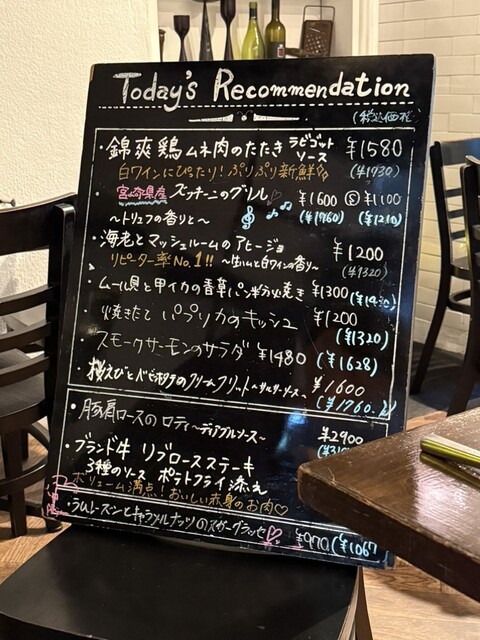 Today's Recommendation
(税込価格)
・錦爽鶏ムネ肉のたたき ラビゴットソース ¥1580
白ワインにぴったり!ぷりぷり新鮮 (¥1730)
宮崎県産 ズッキーニのグリル ¥1600 Ⓢ¥1100
〜トリュフの香りと〜 (¥1760) (¥1210)
・海老とマッシュルームのアヒージョ ¥1200
リピーター率No.1!! 〜生ハムと白ワインの香り〜 (¥1320)
・ムール貝と甲イカの香草パン粉焼き ¥1300
・焼きたて パプリカのキッシュ ¥1200
(¥1320)
・スモークサーモンのサラダ ¥1480 (¥1628)
・桜えびと ¥1600
(¥1760)
・豚肩ロースのロティ 〜ディアブルソース〜 ¥2900
・ブランド牛 リブロースステーキ
3種のソース ポテトフライ添え
ボリューム満点!おいしい赤身のお肉♡
・ラムレーズンとキャラメルナッツのヌガーグラッセ♡ ¥970 (¥1067